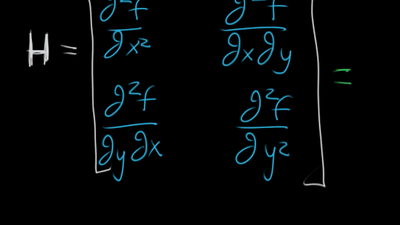 H = [ ∂²f/∂x² ∂²f/∂x∂y
∂²f/∂y∂x ∂²f/∂y² ] =